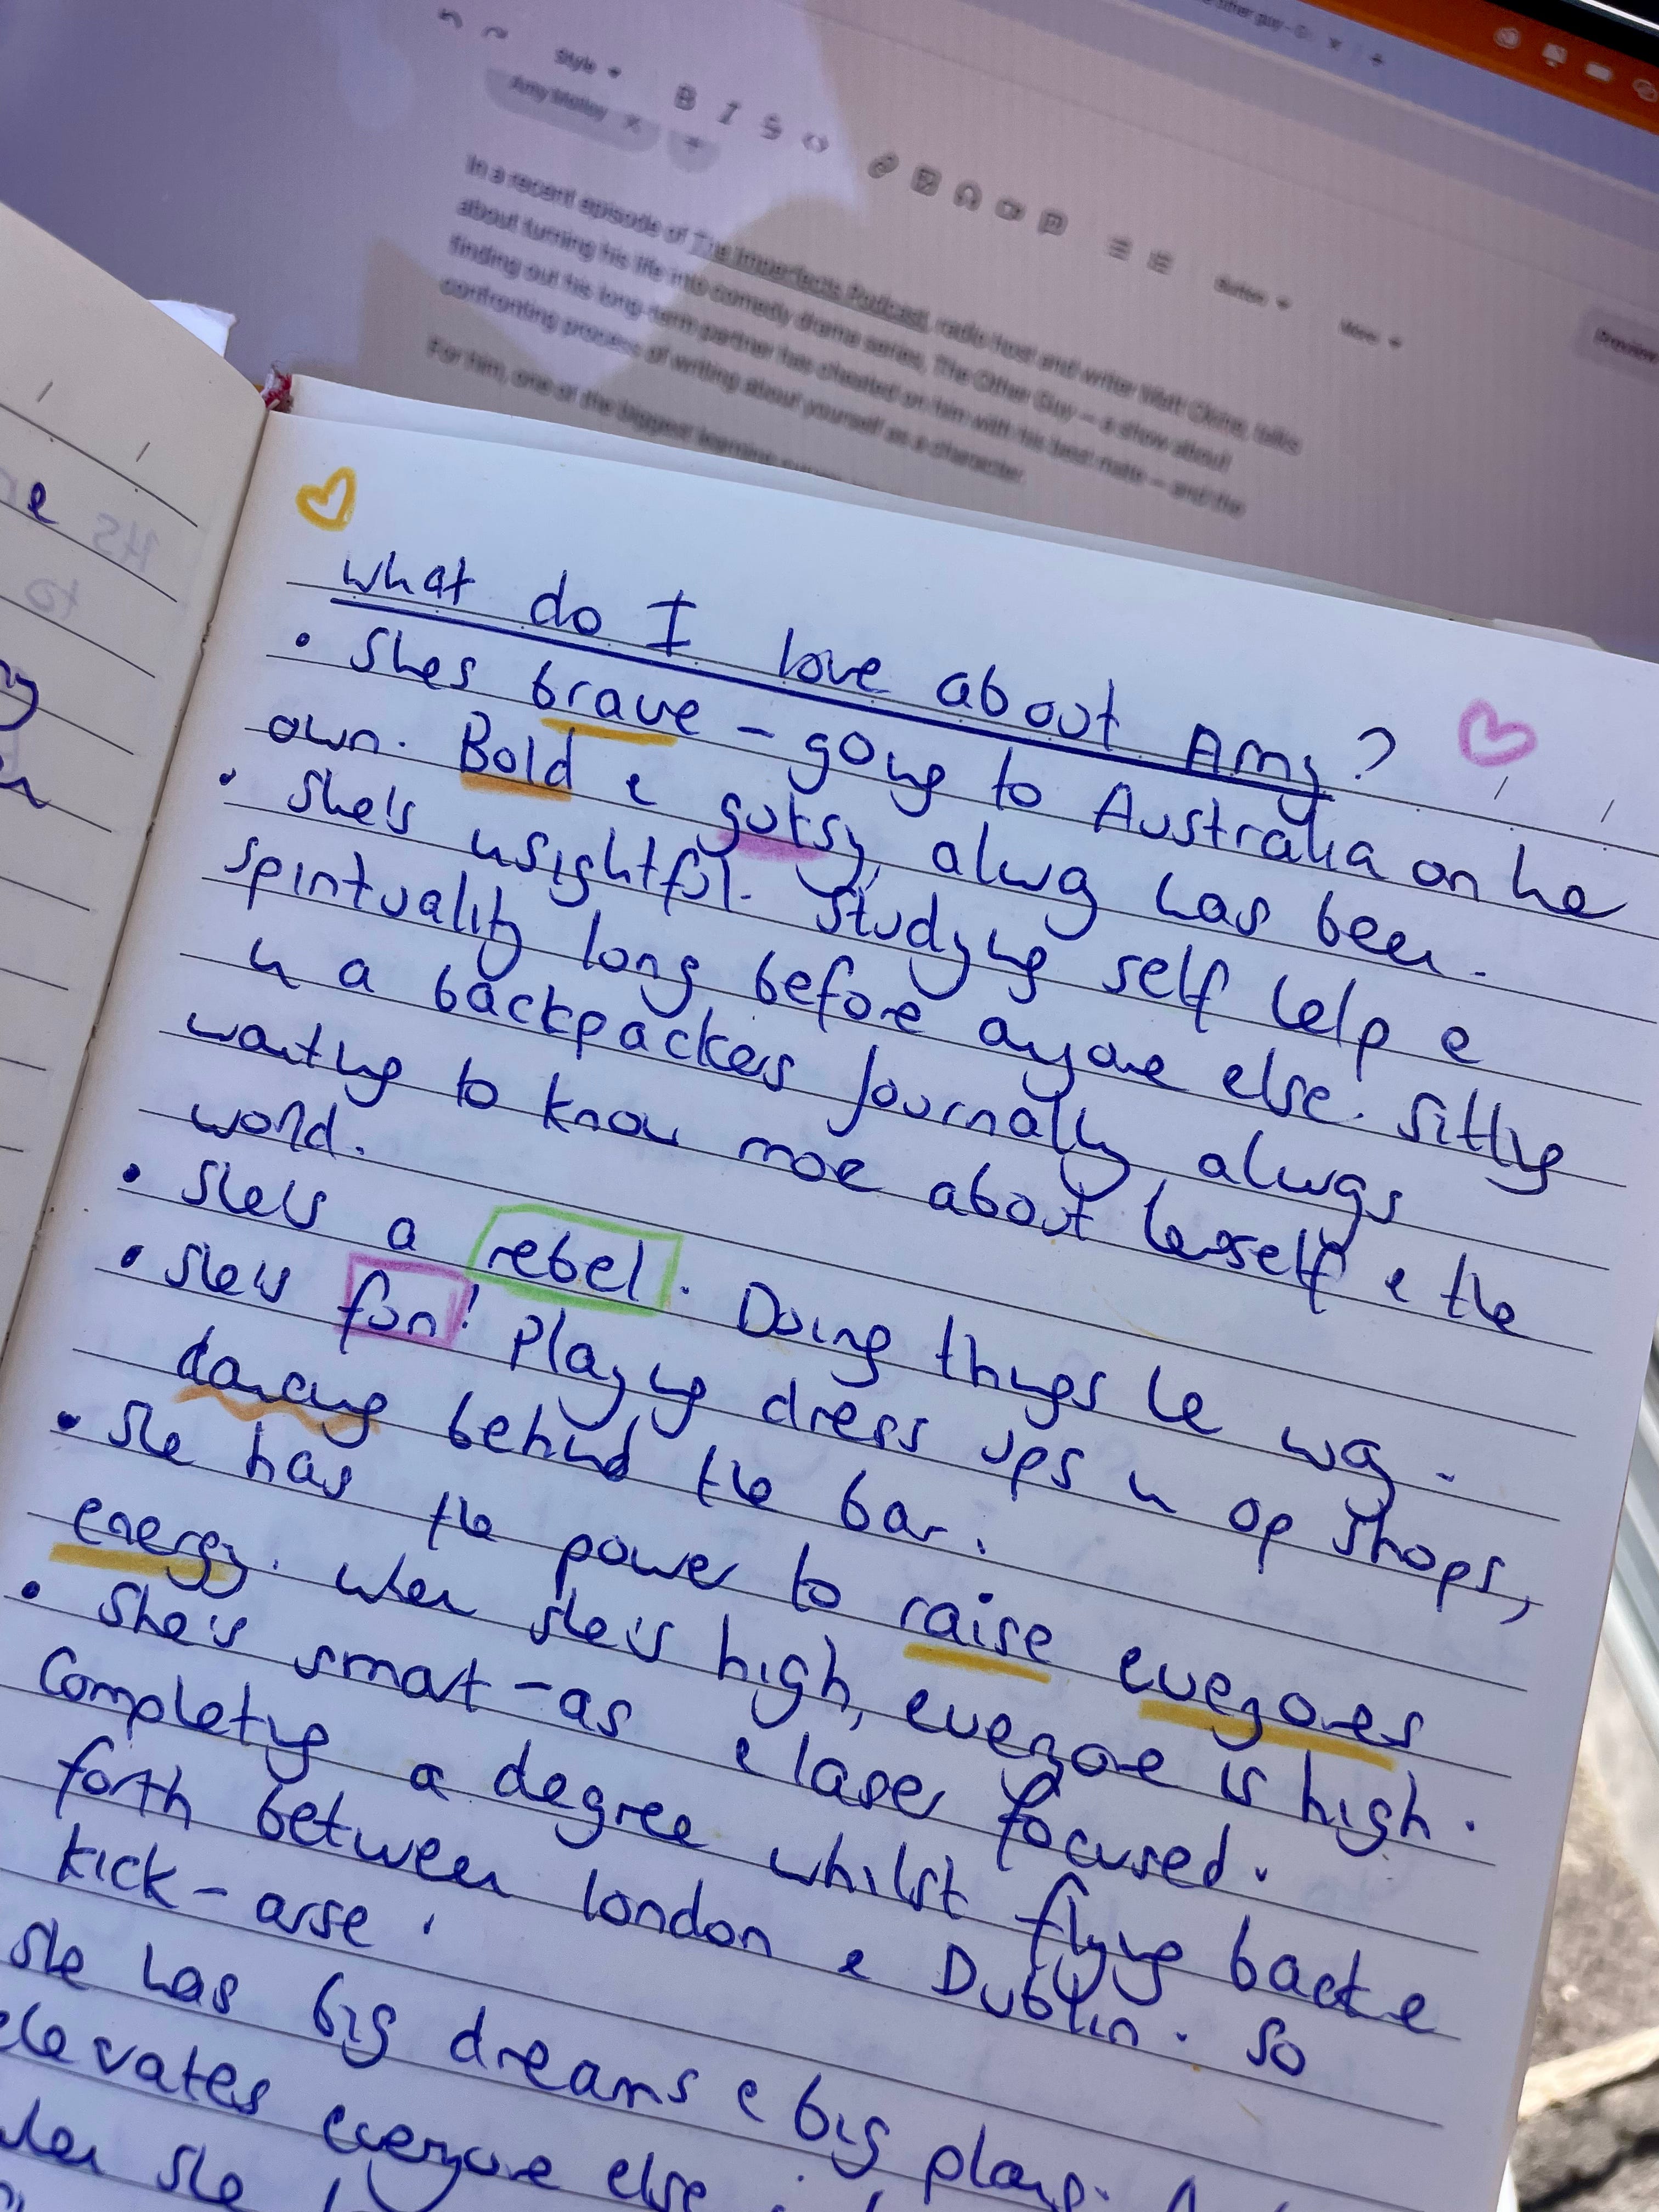 other guy - D
Style
B I S <>
Button
More
Preview
Amy Molloy
In a recent episode of The Imperfects Podcast, radio host and writer Matt Okine, talks
about turning his life into comedy drama series, The Other Guy — a show about
finding out his long-term partner has cheated on him with his best mate — and the
confronting process of writing about yourself as a character.
For him, one of the biggest learning
e
what do I love about Amy?
• Shes brave - going to Australia on he
own. Bold & gutsy, alway has been.
• She's insightful. Studying self help &
spirituality long before anyone else. Sitting
in a backpackers journally always
wanting to know more about herself & the
world.
• She's a rebel. Doing things he way.
• She's fun! Playing dress ups in op shops,
dancing behind the bar.
• She has the power to raise everyones
energy. When she's high, everyone is high.
• She's smart-as & laser focused.
Completing a degree whilst flying back &
forth between london & Dublin. So
kick-arse!
She has big dreams & big plans.
elevates everyone else
when she